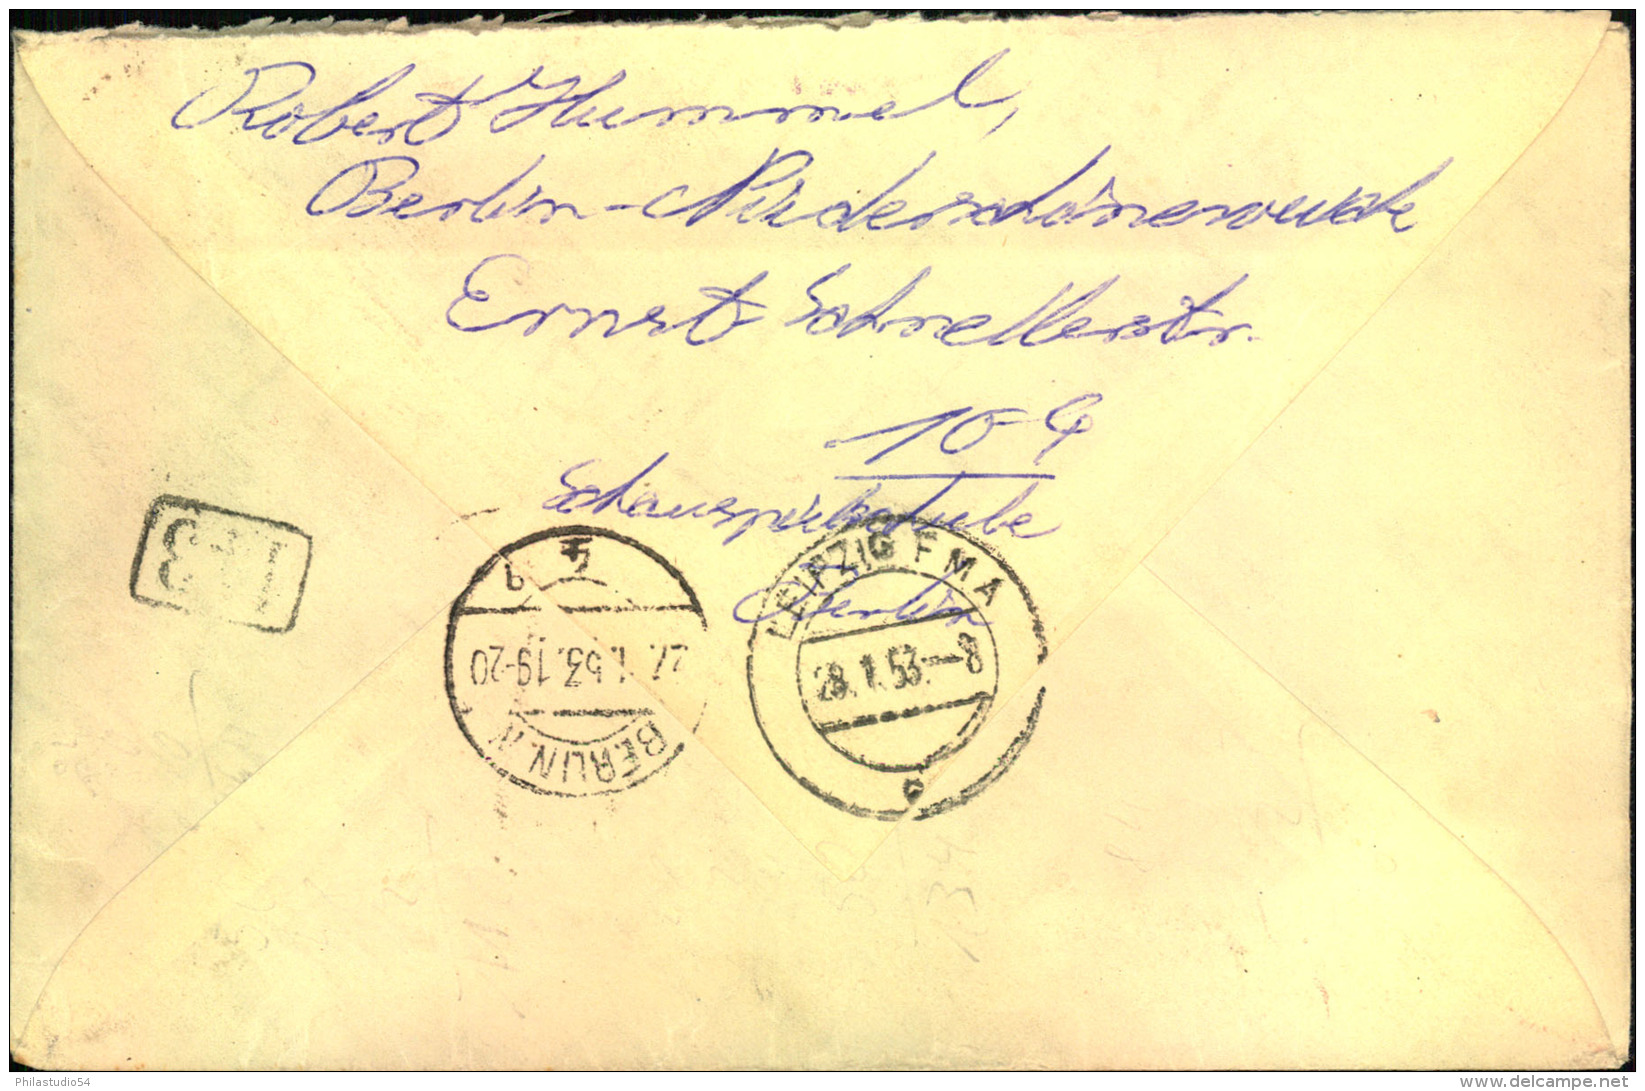 Robert Hummel,
Berlin-Niederschöneweide
Ernst Schnellerstr.
10-9
Schauspielstube
Berlin
LEIPZIG F M A
28.1.53.—8
e
BERLIN N
27.1.53.19-20
4
b
Philastudio54
www.delcampe.net